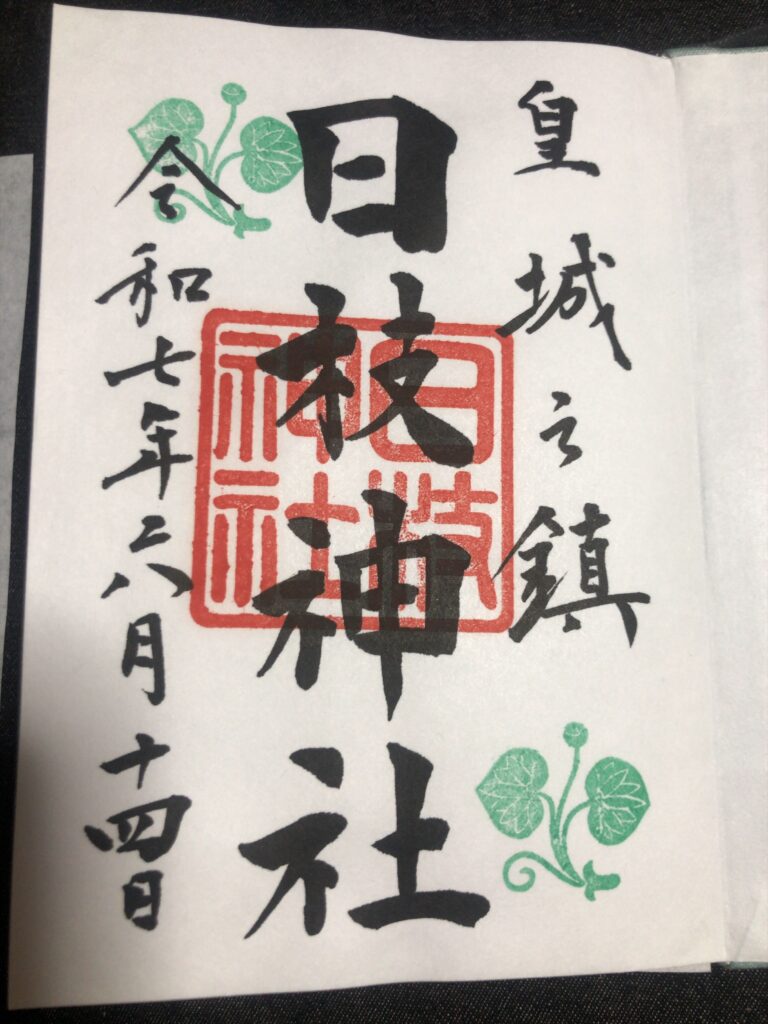 皇城之鎮
日枝神社
日枝
神社
令和七年六月十四日